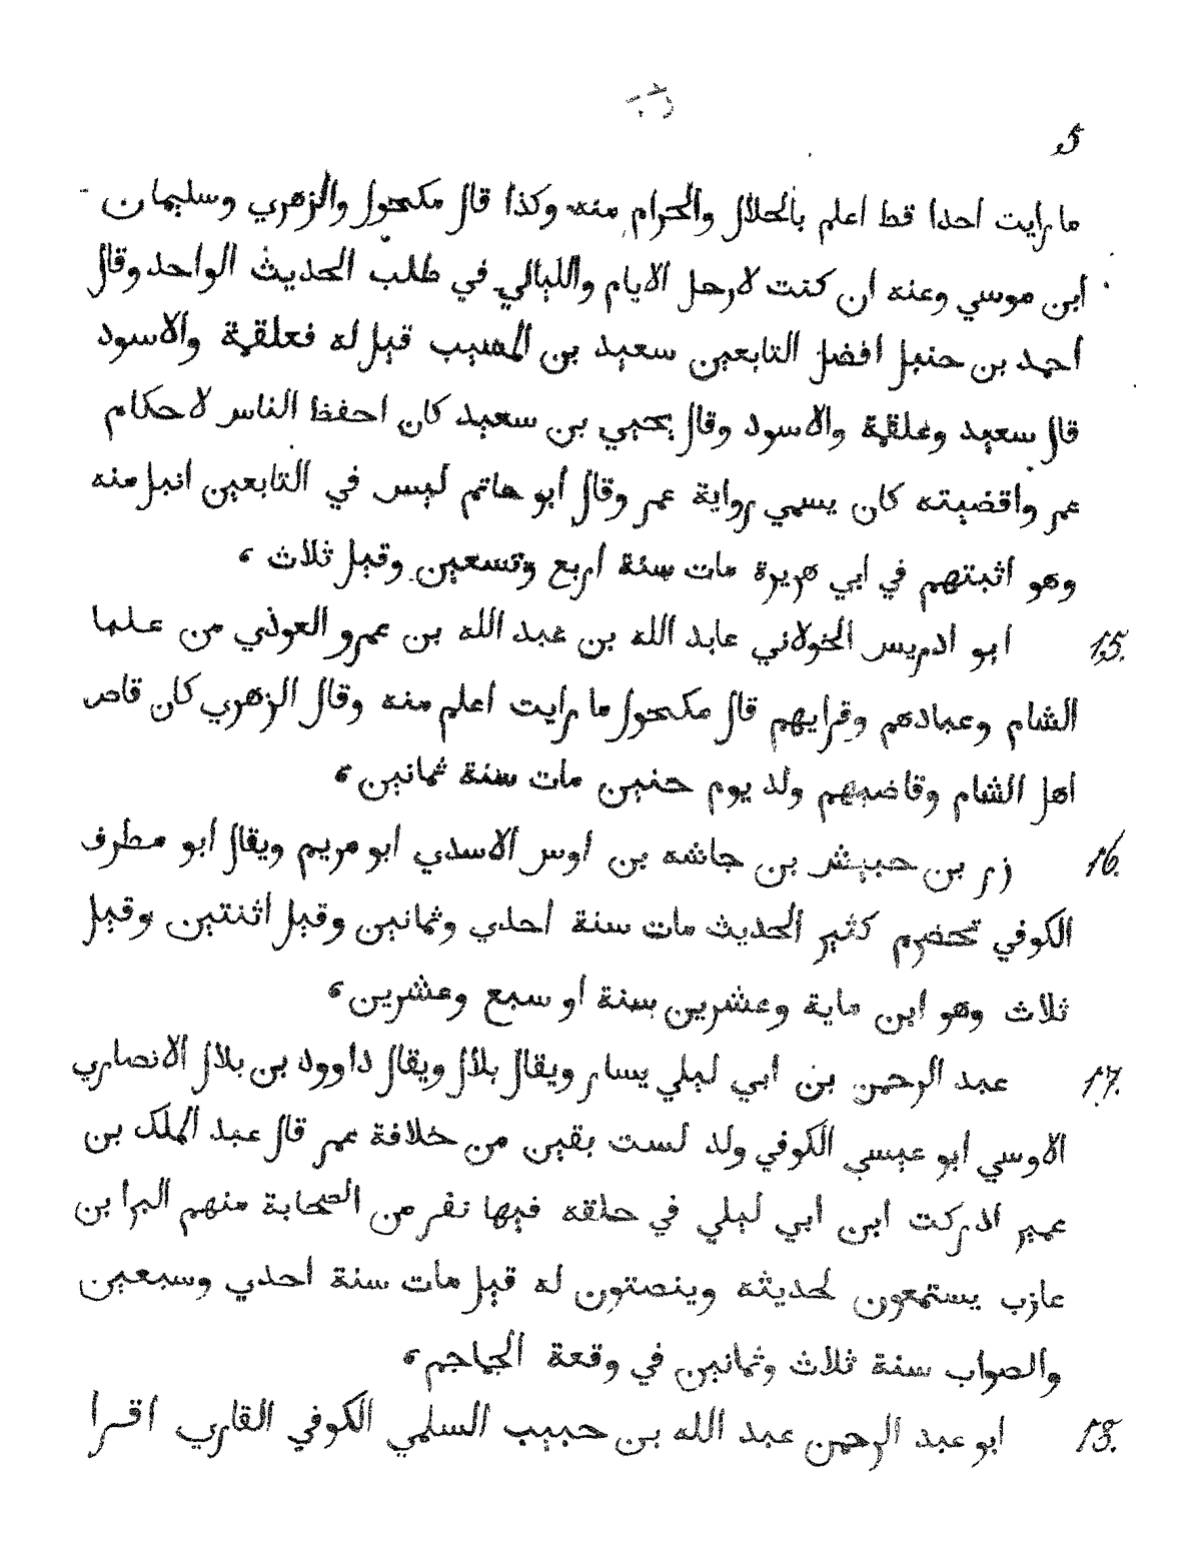 5
ما رايت احدا قط اعلم بالحلال والحرام منه وكذا قال مكحول والزهري وسليمان
ابن موسي وعنه ان كنت لارحل الايام والليالي في طلب الحديث الواحد وقال
احمد بن حنبل افضل التابعين سعيد بن المسيب قيل له فعلقمة والاسود
قال سعيد وعلقمة والاسود وقال يحيي بن سعيد كان احفظ الناس لاحكام
عمر واقضيته كان يسمي رواية عمر وقال ابو حاتم ليس في التابعين انبل منه
وهو اثبتهم في ابي هريرة مات سنة اربع وتسعين وقيل ثلاث ،
15. ابو ادريس الخولاني عابد الله بن عبد الله بن عمرو العوذي من علما
الشام وعبادهم وقرايهم قال مكحول ما رايت اعلم منه وقال الزهري كان قاص
اهل الشام وقاضيهم ولد يوم حنين مات سنة ثمانين ،
16. زر بن حبيش بن حاشه بن اوس الاسدي ابو مريم ويقال ابو مطرف
الكوفي تخضرم كثير الحديث مات سنة احدي وثمانين وقيل اثنتين وقيل
ثلاث وهو ابن ماية وعشرين سنة او سبع وعشرين ،
17. عبد الرحمن بن ابي ليلي يسار ويقال بلال ويقال داوود بن بلال الانصاري
الاوسي ابو عيسي الكوفي ولد لست بقين من خلافة عمر قال عبد الملك بن
عمير ادركت ابن ابي ليلي في حلقه فيها نفر من الصحابة منهم البرا بن
عازب يستمعون لحديثه وينصتون له قيل مات سنة احدي وسبعين
والصواب سنة ثلاث وثمانين في وقعة الجماجم ،
18. ابو عبد الرحمن عبد الله بن حبيب السلمي الكوفي القاري اقرا